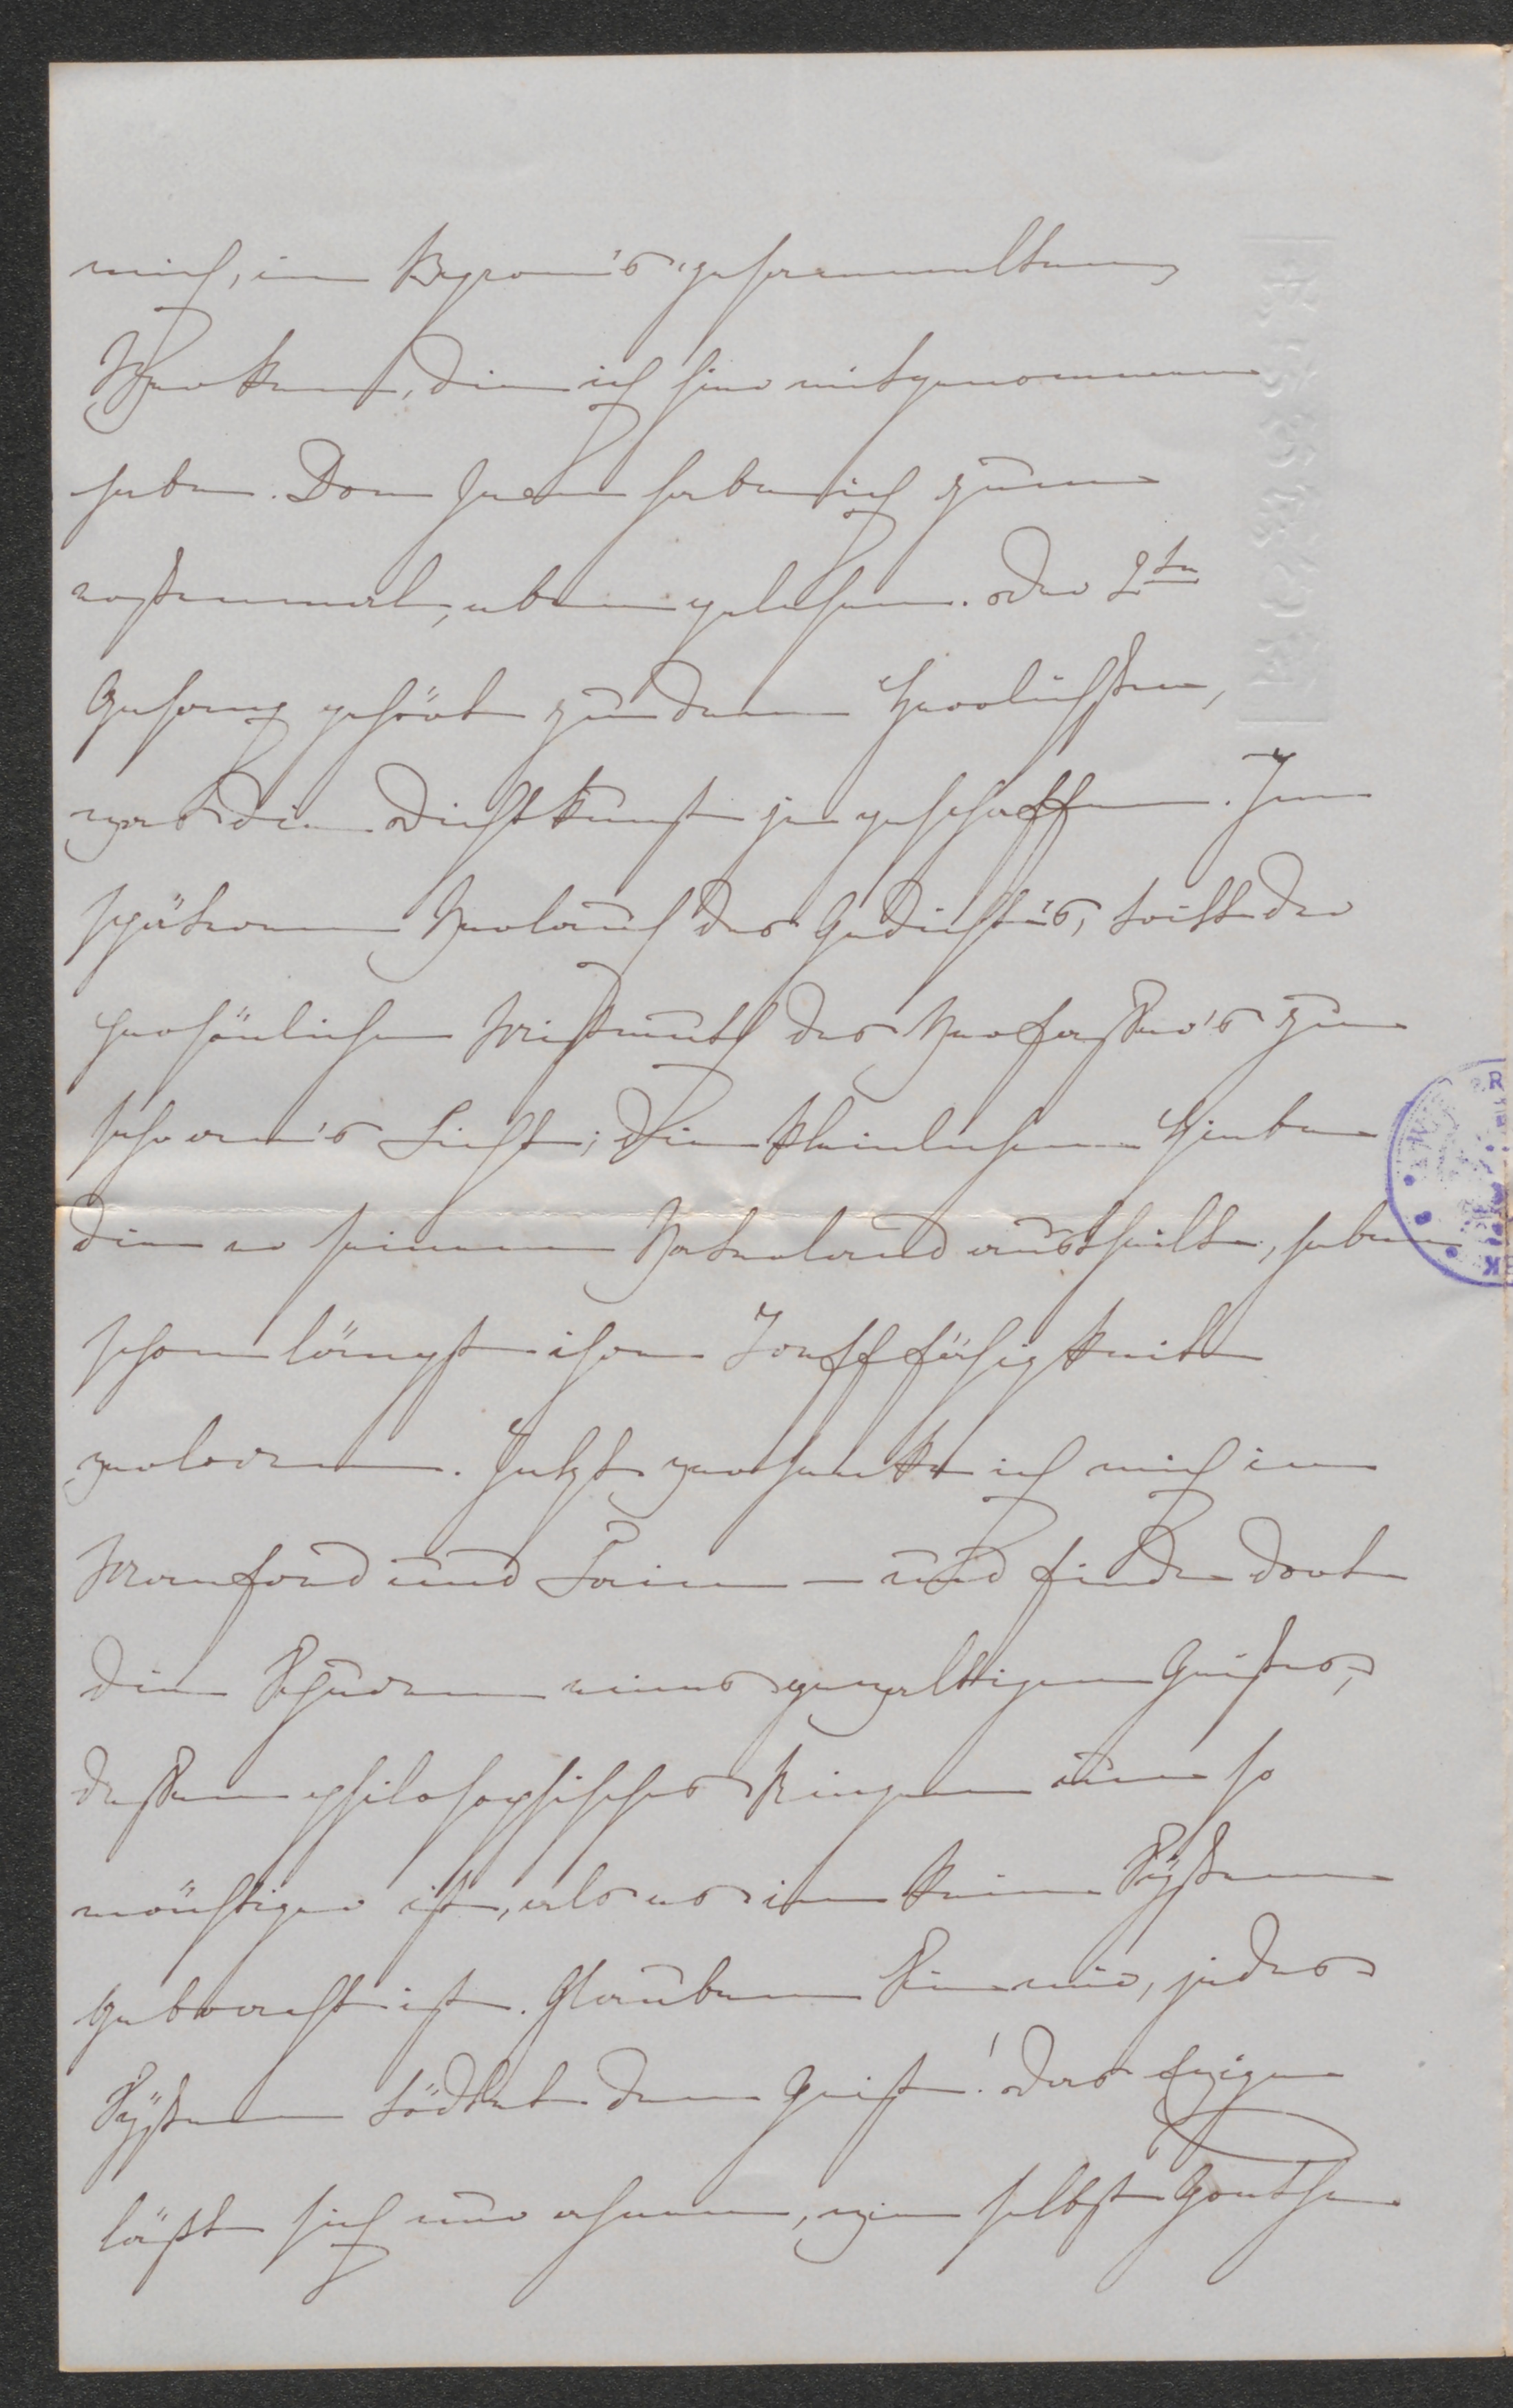 mich, in Byron's gesammelten
Werken, die ich hier mitgenommen
habe. Don Juan habe ich zum
erstenmal, eben gelesen. Der 2te
Gesang gehört zu dem Herrlichsten,
was die Dichtkunst je geschaffen. Im
späteren Verlauf des Gedichts, tritt der
persönliche Mißmuth des Verfaßer's zu
sehr an's Licht; die kleinlichen Hiebe
die er seinem Vaterland austheilt, haben
schon längst ihre Treffähigkeit
verloren. Jetzt versenke ich mich in
Manfred und Cain – und finde dort
die Spuren eines gewaltigen Geistes,
deßen philosophisches Ringen um so
mächtiger ist, als es in kein System
gebracht ist. Glauben Sie mir, jedes
System tödtet den Geist! Das Ewige
läßt sich nur ahnen, wie selbst Goethe